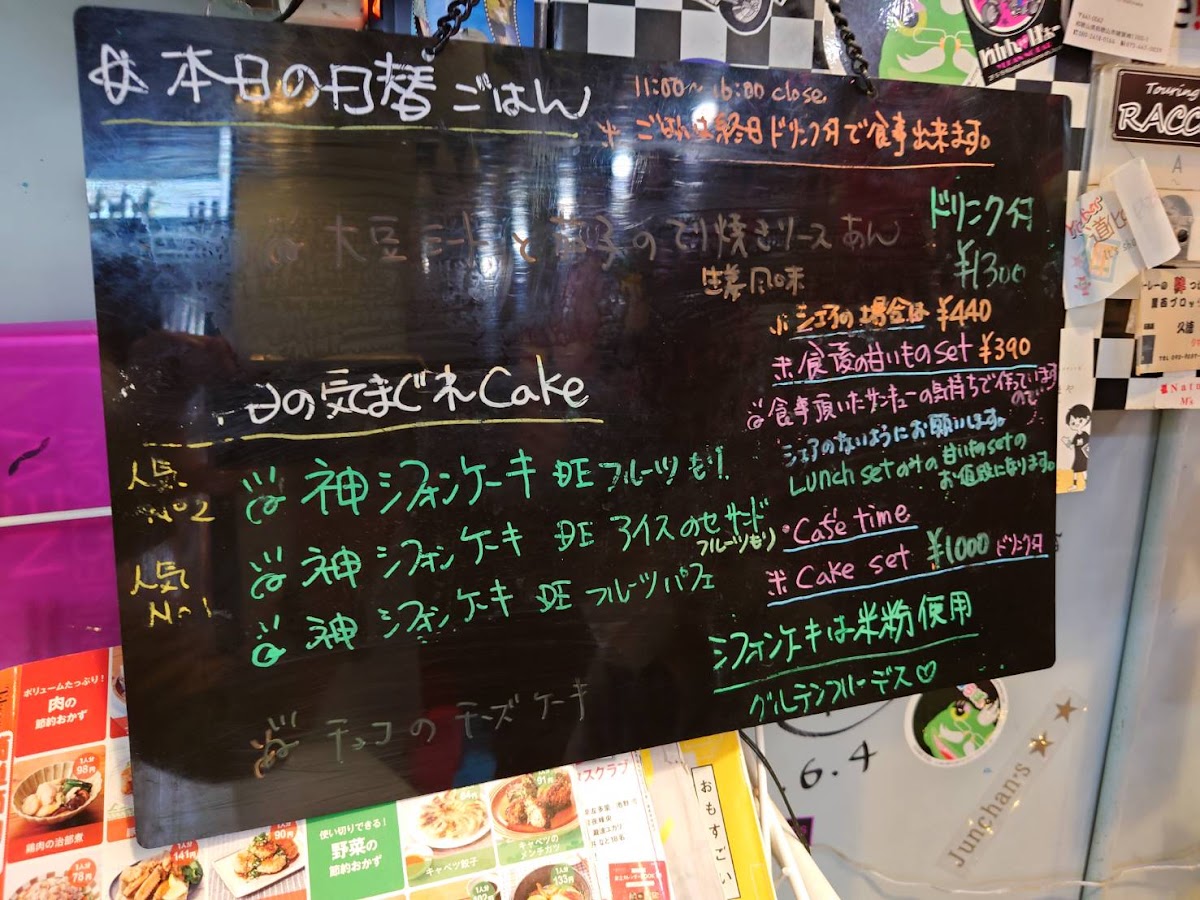 本日の日替ごはん
11:00~16:00 close
※ ごはんは終日ドリンク付で食事出来ます。
大豆ミートと茄子のてり焼きソースあん
生姜風味
ドリンク付
¥1300
※シェアの場合は ¥440
※食後の甘いものset ¥390
食事頂いたサンキューの気持ちで作っています
ので
シェアのないようにお願いします。
Lunch setのみの甘い物setの
お値段になります。
・Cafe time
※ Cake set ¥1000 ドリンク付
シフォンケーキは米粉使用
グルテンフリーデス♡
の気まぐれCake
人気
No2
神シフォンケーキ DE フルーツもり!
神シフォンケーキ DE アイスのせサンド
フルーツもり
人気
No1
神シフォンケーキ DE フルーツパフェ
チョコのチーズケーキ
Touring
RACC
Junchan's
6.4
おもすごい
ボリュームたっぷり!
肉の
節約おかず
1人分
98円
鶏肉の治部煮
78円
141円
90円
使い切りできる!
野菜の
節約おかず
キャベツ餃子
91円
キャベツの
メンチカツ
133円
スクラブ